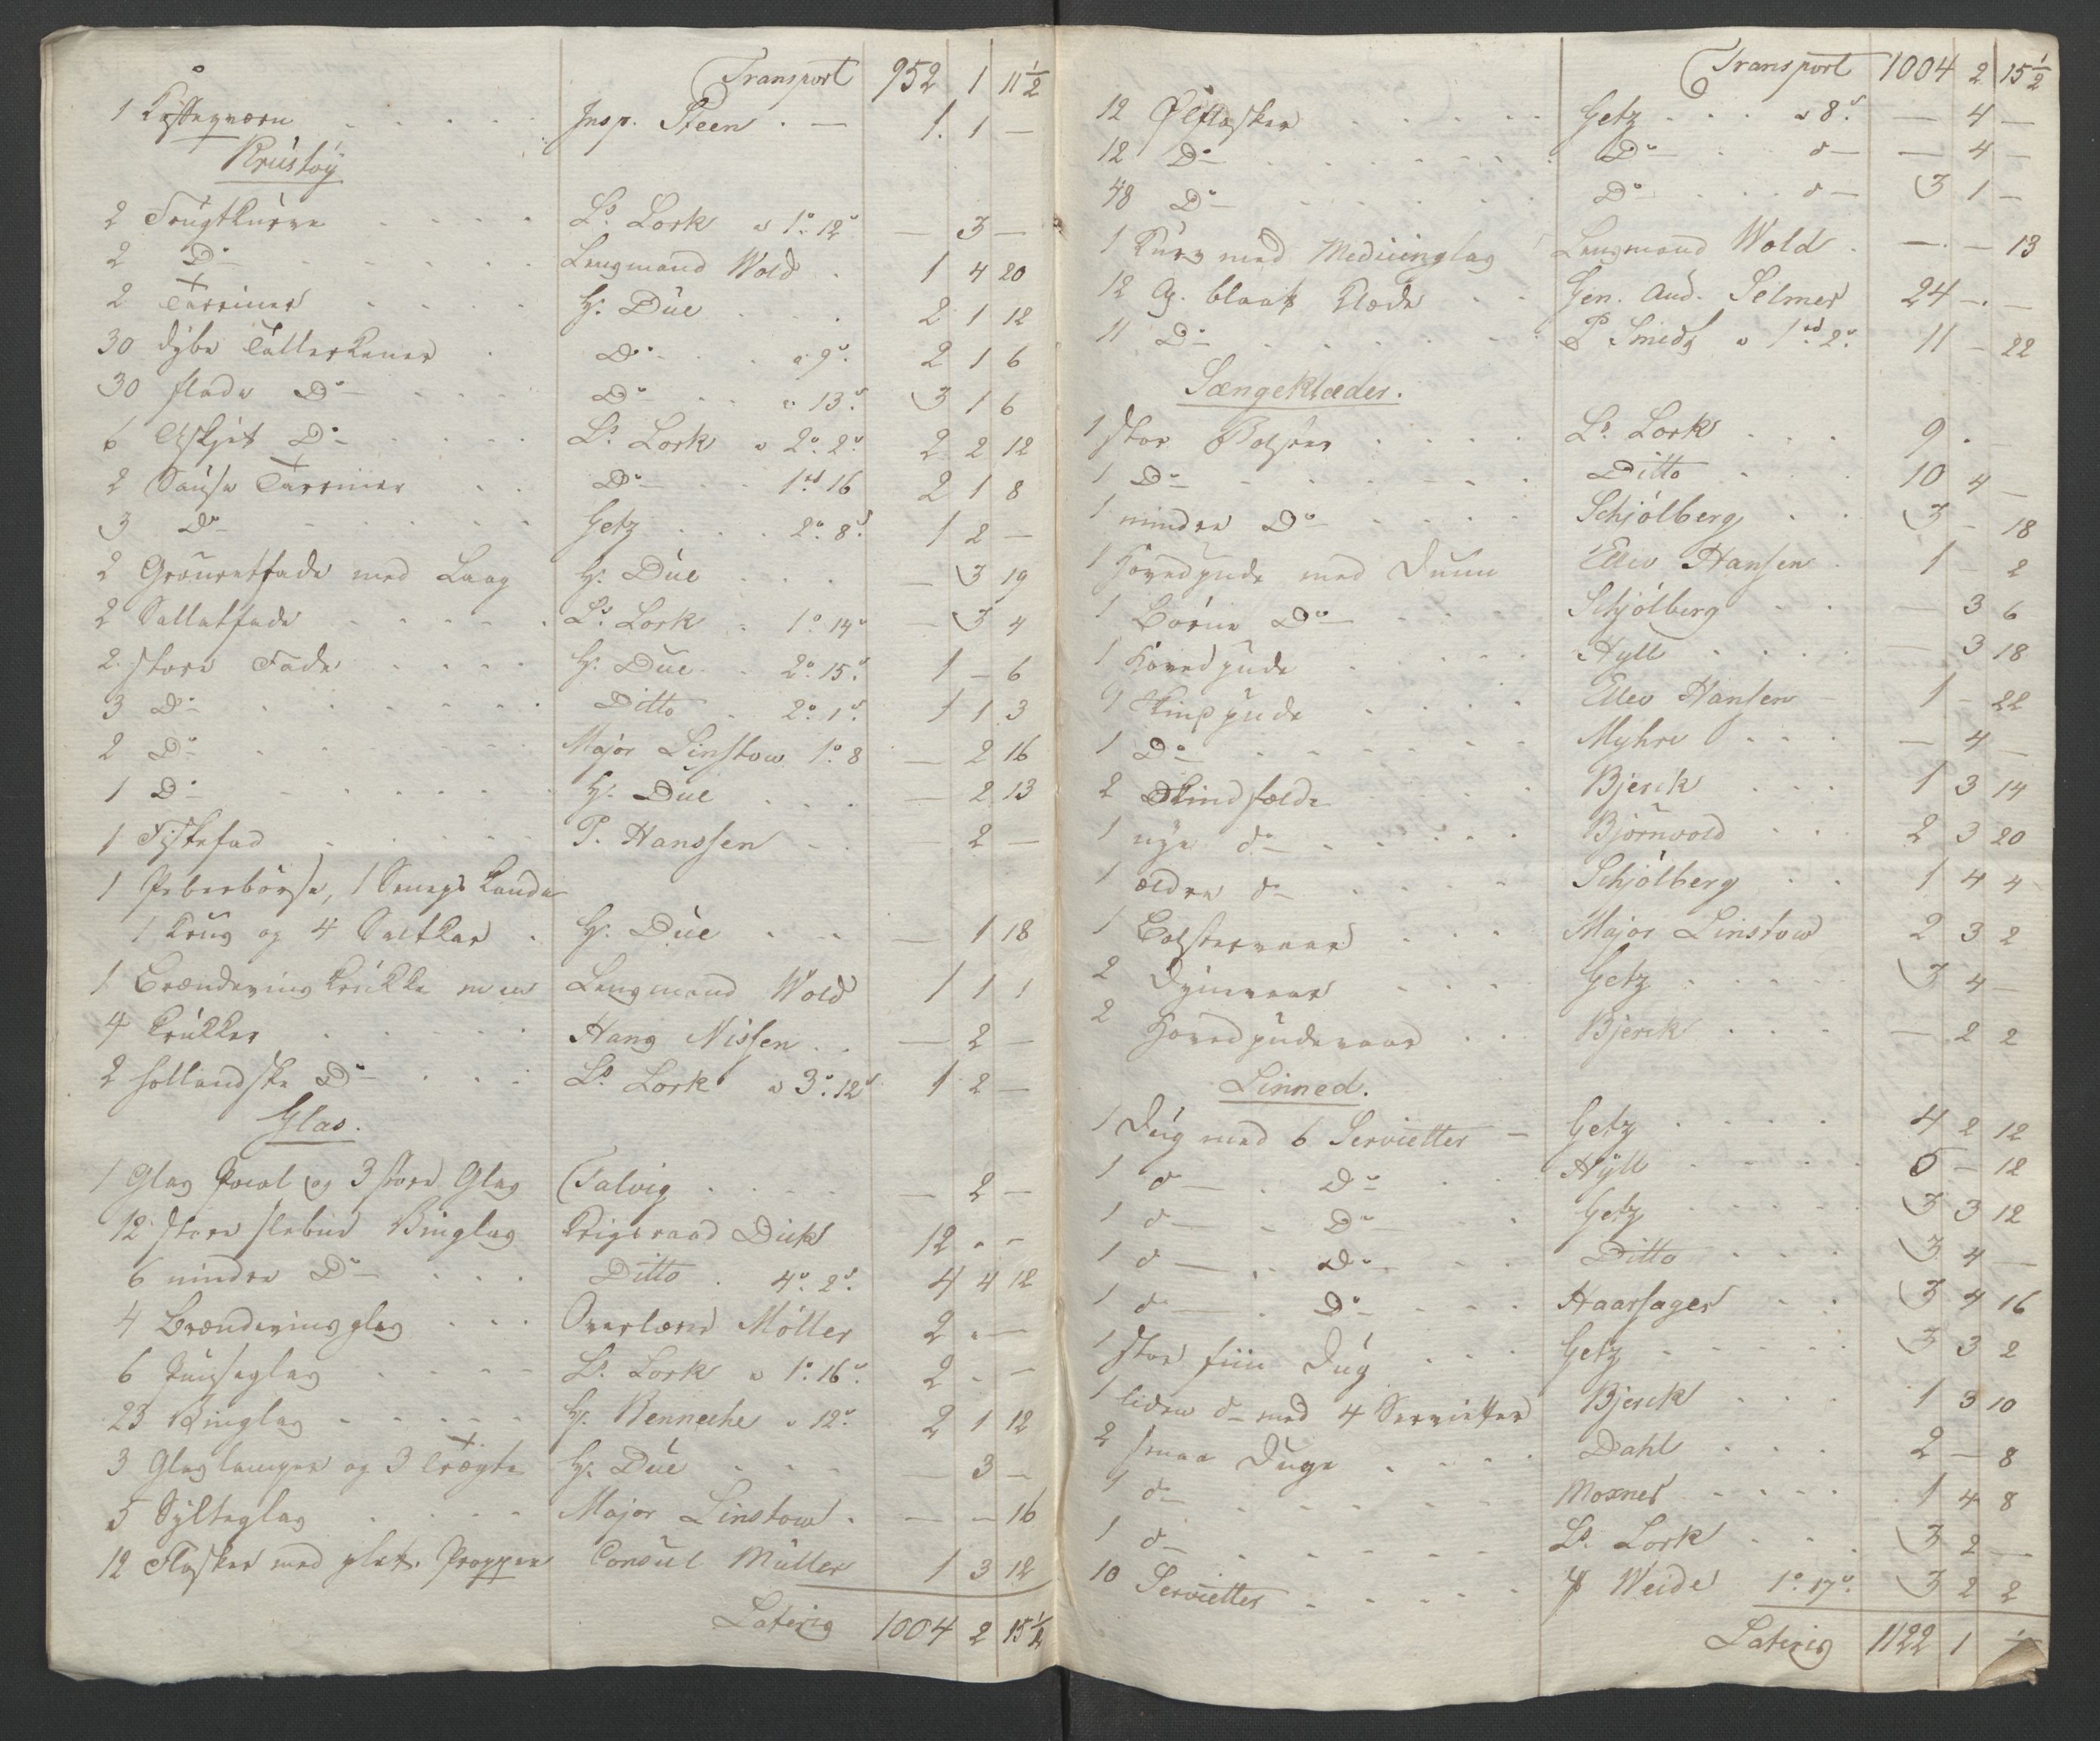 Transport 952 1 11½
1 Kaffeqværn . . . . Insp. Steen . — 1. 1 —
Krustöÿ
2 Frugtkurve . . . . Lt. Lork a 1. 12 — 3 —
2 Do — . . . . Laugmand Wold . 1 4 20
2 Tarriner . . . . H. Due . . . 2 1 12
30 dybe Tallerkener . Do . . a 9. 2 1 6
30 flade Do — . . . Do — . . a 13. 3 1 6
6 Do — . . . Lt. Lork a 2. 2. 2 2 12
2 Sause Tarriner . . Do — . . 1 16 2 1 8
3 Do — . . . . Getz . . . 2. 8. 1 2 —
2 fade med Laag H. Due . . . — 3 19
2 Sallatfade . . . . Lt. Lork . 1. 14 — 3 4
2 store Fade . . . . H. Due . 2. 15. 1 — 6
3 Do — . . . . Ditto . 2. 1. 1 1 3
2 Do — . . . . Major Linstow 1. 8 — 2 16
1 Do — . . . . H. Due . . . — 2 13
1 Fiskefad . . . . P. Hanssen . . — 2 —
1 Peberbösse, 1 Senneps Kande
1 Krug og 4 Saltkar . H. Due . . . — 1 18
1 Brændeviins Krukke Laugmand Wold 1 1 1
4 Krukker . . . . Hans Nissen . . — 2 —
2 hollandske Do — . . . Lt. Lork a 3. 12 1 2 —
Glas.
1 Glas Pocal og 3 store Glas Talvig . . . . — 2 —
12 store slebne Viinglas Krigsraad Dick 12 - -
6 mindre Do — . . . Ditto . 4. 2. 4 4 12
4 Brændeviins glas . . . Overlærer Möller 2 - —
6 Punseglas . . . . Lt. Lork a 1. 16. 2 - —
23 Viinglas . . . . H. Benneche a 12. 2 1 12
3 Glaslamper og 3 Trægte H. Due . . . — 3 —
5 Sylteglas . . . . Major Linstow . — — 16
12 Flasker med plet. Propper Consul Müller 1 3 12
Lateris 1004 2 15½
Transport 1004 2 15½
12 Ølflasker . . . . Getz . . . a 8. — 4 —
12 Do — . . . . Do — . . d — — 4 —
48 Do — . . . . Do — . . d — 3 1 —
1 Kurv med Medicinglas Laugmand Wold . — . — 13
12 Al. blaat Klæde . . Gen. Aud. Selmer 24 — . —
11 Do — . . . . P Smedt a 1 2. 11 — 22
Sængeklæder.
1 stor Bolster . . . . Lt. Lork . . . 9 .
1 Do — . . . . Ditto . . . 10 4 —
1 mindre Do — . . . Schjölberg . . 3 — 18
1 Hovedpude med Duun Ellev Hansen . 1 — 2
1 Börne Do — . . . Schjölberg . . — 3 6
1 Hovedpude . . . . Hyll . . . . — 3 18
1 pude . . . . Ellev Hansen — 1 — 22
1 Do — . . . . Myhre . . . — 4 —
2 Skindfælde . . . . Bjerck . . . 1 3 14
1 nye d — . . . . Björnvold . . 2 3 20
1 ældre d — . . . . Schjölberg . . 1 4 4
1 Bolstervaar . . . Major Linstow 2 3 2
2 Dynevaar . . . . Getz . . . . 3 4 —
2 Hovedpudevaar . . . Bjerck . . . — 2 2
Linned.
1 Dug med 6 Servietter — Getz . . . . 4 2 12
1 d — . Do — . . Hyll . . . . 5 — 12
1 d — . Do — . Getz . . . . 3 3 12
1 d — . Do — . . Ditto . . . 3 4 —
1 d — . Do — . . . Haarsager . . 3 4 16
1 stor fiin Dug . . . Getz . . . . 3 3 2
1 liden d — med 4 Servietter Bjerck . . . 1 3 10
2 smaa Duge . . . . Dahl . . . 2 — 8
1 d — . . . . Moxnes . . . . 1 4 8
1 d — . . . . Lt. Lork . . . 3 2 —
10 Servietter . . . . Weide 1. 17. 3 2 2
Lateris 1122 1